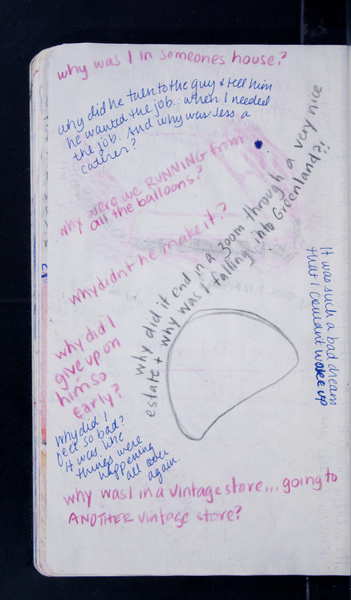 why was I in someones house?
why did he turn to the guy & tell him
he wanted the job.. when I needed
the job. And why was Jess a
caterer?
why were we RUNNING from
all the balloons?
why didn't he make it?
why did it end in a zoom through a very nice
estate + why was I falling into Greenland?!
It was such a bad dream
that I couldnt wake up
why did I
give up on
him so
early?
why did I
feel so bad?
It was like
things were
happening
all over
again.
why was I in a vintage store... going to
ANOTHER vintage store?